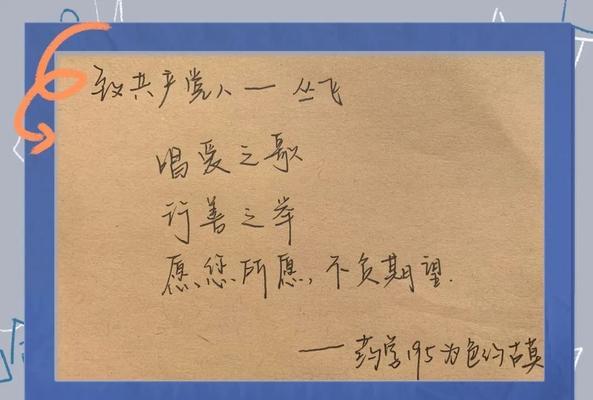 致共产党人一丛飞
唱爱之歌
行善之举
愿您所愿,不负期望.
——药学195为色们古莫